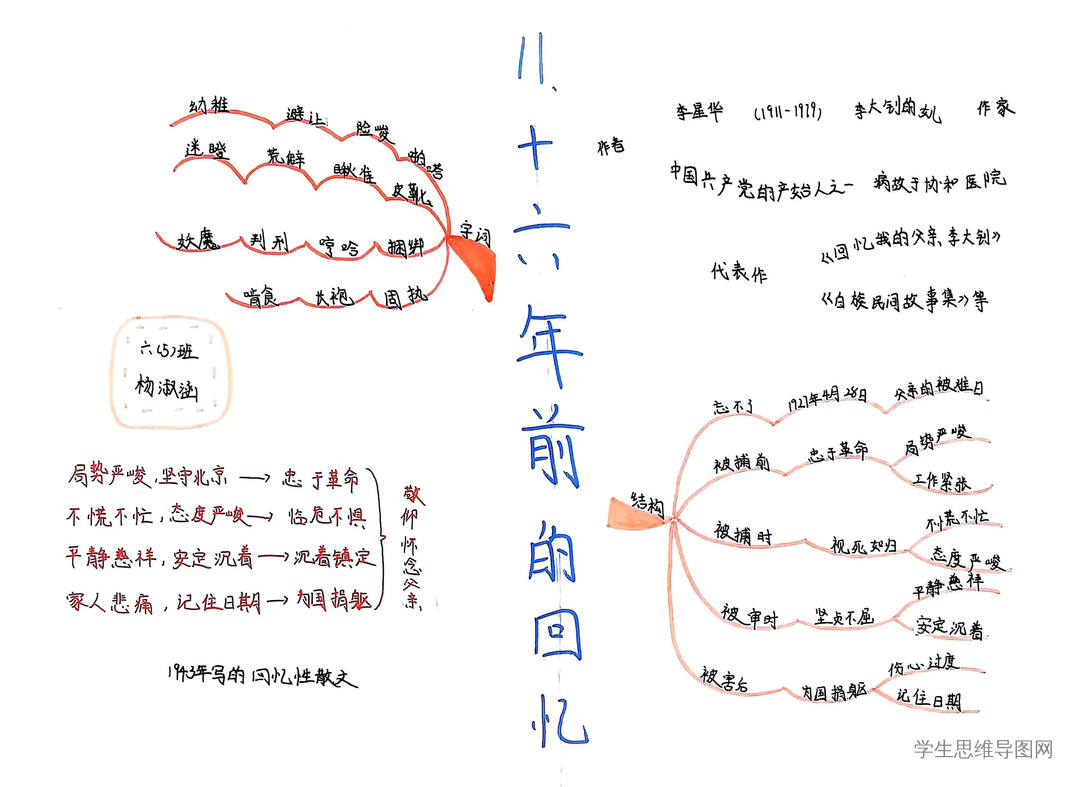 11、十六年前的回忆
字词
幼稚 避让 险峻 啪嗒
迷瞪 荒僻 瞅准 皮靴
妖魔 判刑 哼哈 捆绑
啃食 长袍 固执
六(5)班
杨淑涵
局势严峻,坚守北京→忠于革命
不慌不忙,态度严峻→临危不惧
平静慈祥,安定沉着→沉着镇定
家人悲痛,记住日期→为国捐躯
敬仰怀念父亲
1943年写的回忆性散文
作者
李星华 (1911-1979) 李大钊的女儿 作家
中国共产党的产始人之一 病故于协和医院
代表作
《回忆我的父亲李大钊》
《白族民间故事集》等
结构
忘不了 1927年4月28日 父亲的被难日
被捕前 忠于革命 局势严峻
工作紧张
被捕时 视死如归 不慌不忙
态度严峻
被审时 坚贞不屈 平静慈祥
安定沉着
被害后 为国捐躯 伤心过度
记住日期
学生思维导图网